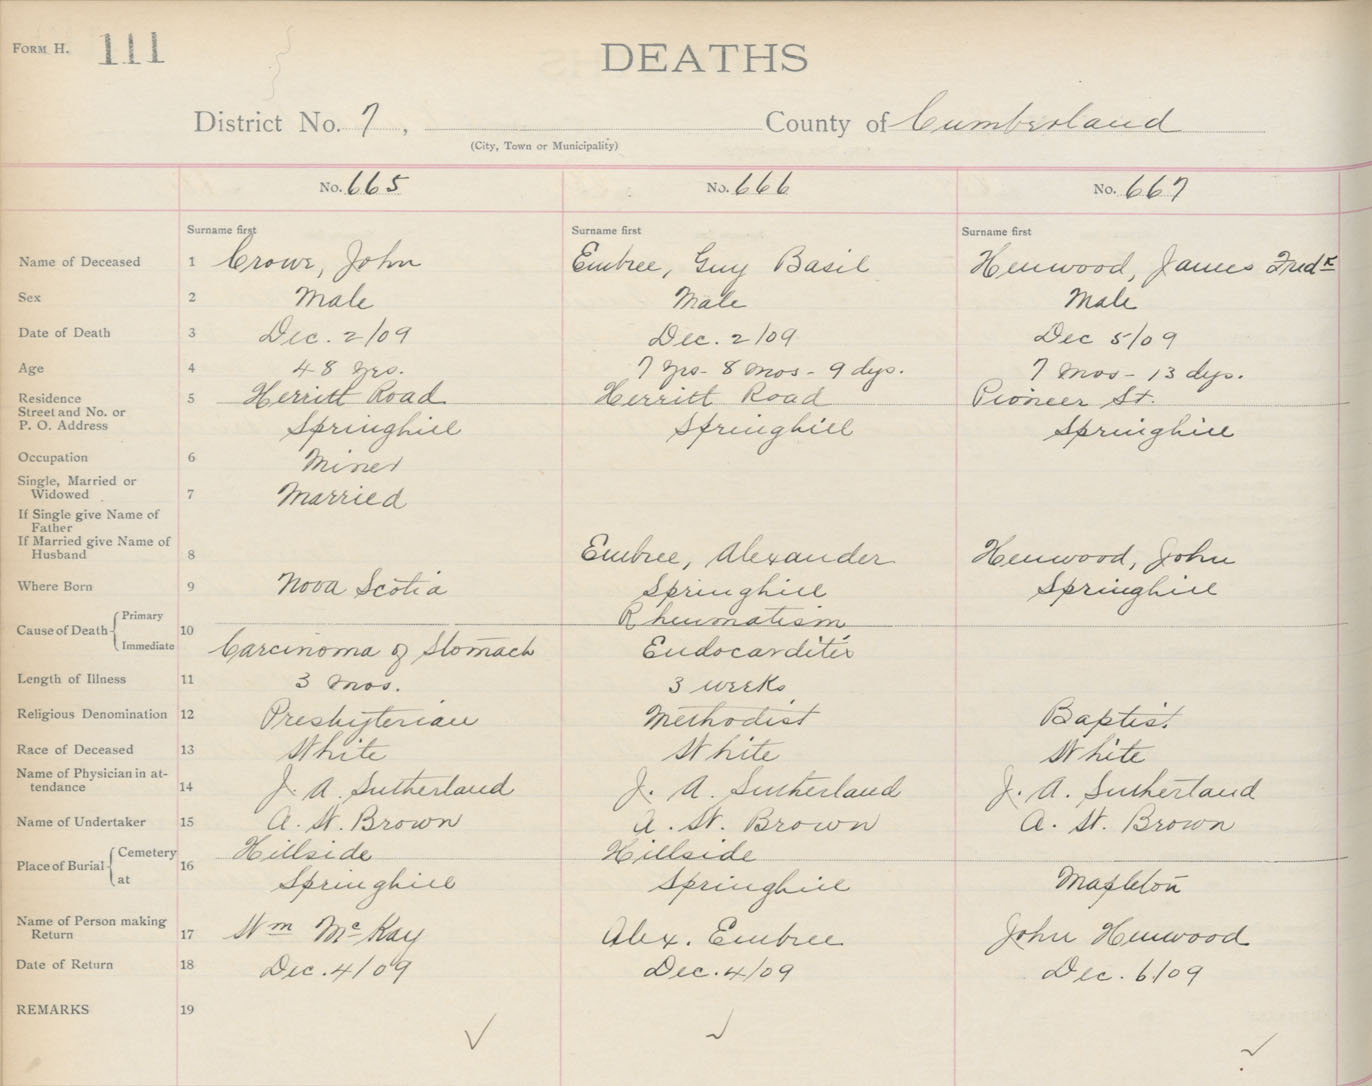 FORM H. 111
DEATHS
District No. 7, County of Cumberland
(City, Town or Municipality)
No. 665 No. 666 No. 667
Surname first Surname first Surname first
Name of Deceased 1 Crowe, John Embree, Guy Basil Henwood, James Fredk
Sex 2 Male Male Male
Date of Death 3 Dec. 2/09 Dec. 2/09 Dec 5/09
Age 4 48 yrs. 7 yrs - 8 mos - 9 dys. 7 mos - 13 dys.
Residence 5 Herritt Road Herritt Road Pioneer St.
Street and No. or
P. O. Address Springhill Springhill Springhill
Occupation 6 Miner
Single, Married or
Widowed 7 Married
If Single give Name of
Father
If Married give Name of
Husband 8 Embree, Alexander Henwood, John
Where Born 9 Nova Scotia Springhill Springhill
Cause of Death 10 Primary Rheumatism
Immediate Carcinoma of Stomach Endocarditis
Length of Illness 11 3 mos. 3 weeks
Religious Denomination 12 Presbyterian Methodist Baptist
Race of Deceased 13 White White White
Name of Physician in at-
tendance 14 J. A. Sutherland J. A. Sutherland J. A. Sutherland
Name of Undertaker 15 A. W. Brown A. W. Brown A. W. Brown
Place of Burial 16 Cemetery Hillside Hillside
at Springhill Springhill Mapleton
Name of Person making
Return 17 Wm McKay Alex. Embree John Henwood
Date of Return 18 Dec. 4/09 Dec. 4/09 Dec. 6/09
REMARKS 19